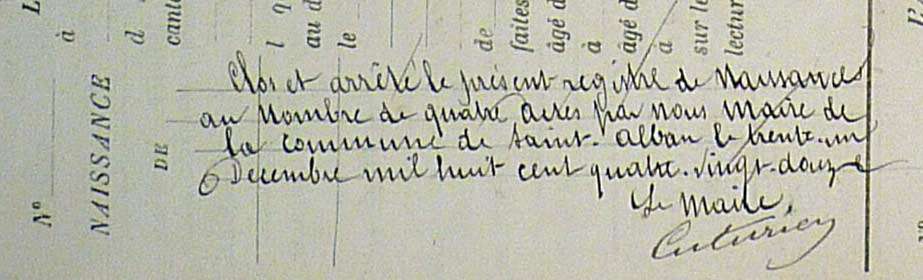 Clos et arrêté le présent registre de Naissances
au Nombre de quatre actes par nous Maire de
la commune de Saint-Alban le trente-un
Decembre mil huit cent quatre-vingt-douze
Le Maire,
N°
NAISSANCE
DE
à
d
cant
l
au d
le
de
faites
âgé d
à
âgé d
a
sur le
lectur